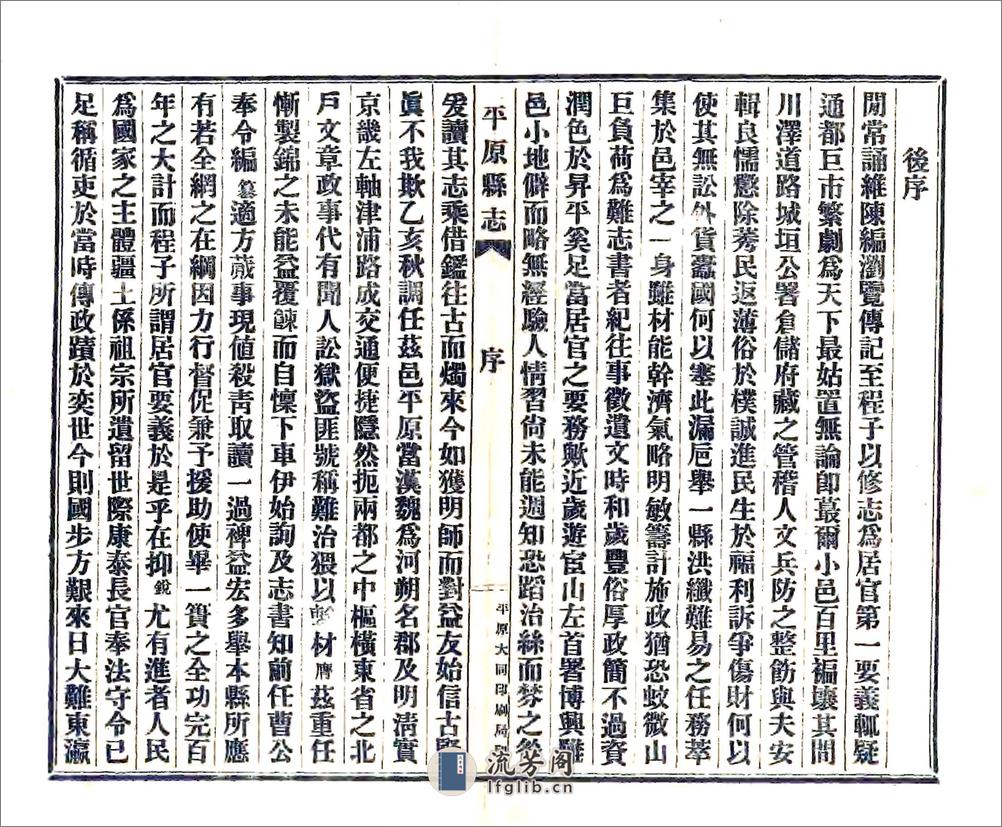 後序
閒常誦維陳編瀏覽傳記至程子以修志爲居官第一要義輒疑
通都巨市繁劇爲天下最姑置無論卽蕞爾小邑百里褊壤其間
川澤道路城垣公署倉儲府藏之管稽人文兵防之整飭與夫安
輯良懦懲除莠民返薄俗於樸誠進民生於福利訴爭傷財何以
使其無訟外貨蠹國何以塞此漏巵舉一縣洪纖難易之任務萃
集於邑宰之一身雖材能幹濟氣略明敏籌計施政猶恐蚊微山
巨負荷爲難志書者紀往事徵遺文時和歲豐俗厚政簡不過資
潤色於昇平奚足當居官之要務歟近歲遊宦山左首署博興雖
邑小地僻而略無經驗人情習尙未能週知恐蹈治絲而棼之
平原縣志
序
平原大同印刷局
爰讀其志乘借鑑往古而燭來今如獲明師而對益友始信古賢
眞不我欺乙亥秋調任茲邑平原當漢魏爲河朔名郡及明淸實
京畿左軸津浦路成交通便捷隱然扼兩都之中樞橫東省之北
戶文章政事代有聞人訟獄盜匪號稱難治猥以材膺茲重任
慚製錦之未能益覆餗而自懍下車伊始詢及志書知前任曹公
奉令編纂適方蕆事現値殺靑取讀一過裨益宏多舉本縣所應
有若全網之在綱因力行督促兼予援助使畢一簣之全功完百
年之大計而程子所謂居官要義於是乎在抑銳尤有進者人民
爲國家之主體疆土係祖宗所遺留世際康泰長官奉法守令已
足稱循吏於當時傳政蹟於奕世今則國步方艱來日大難東瀛
流芳阁
lfglib.cn